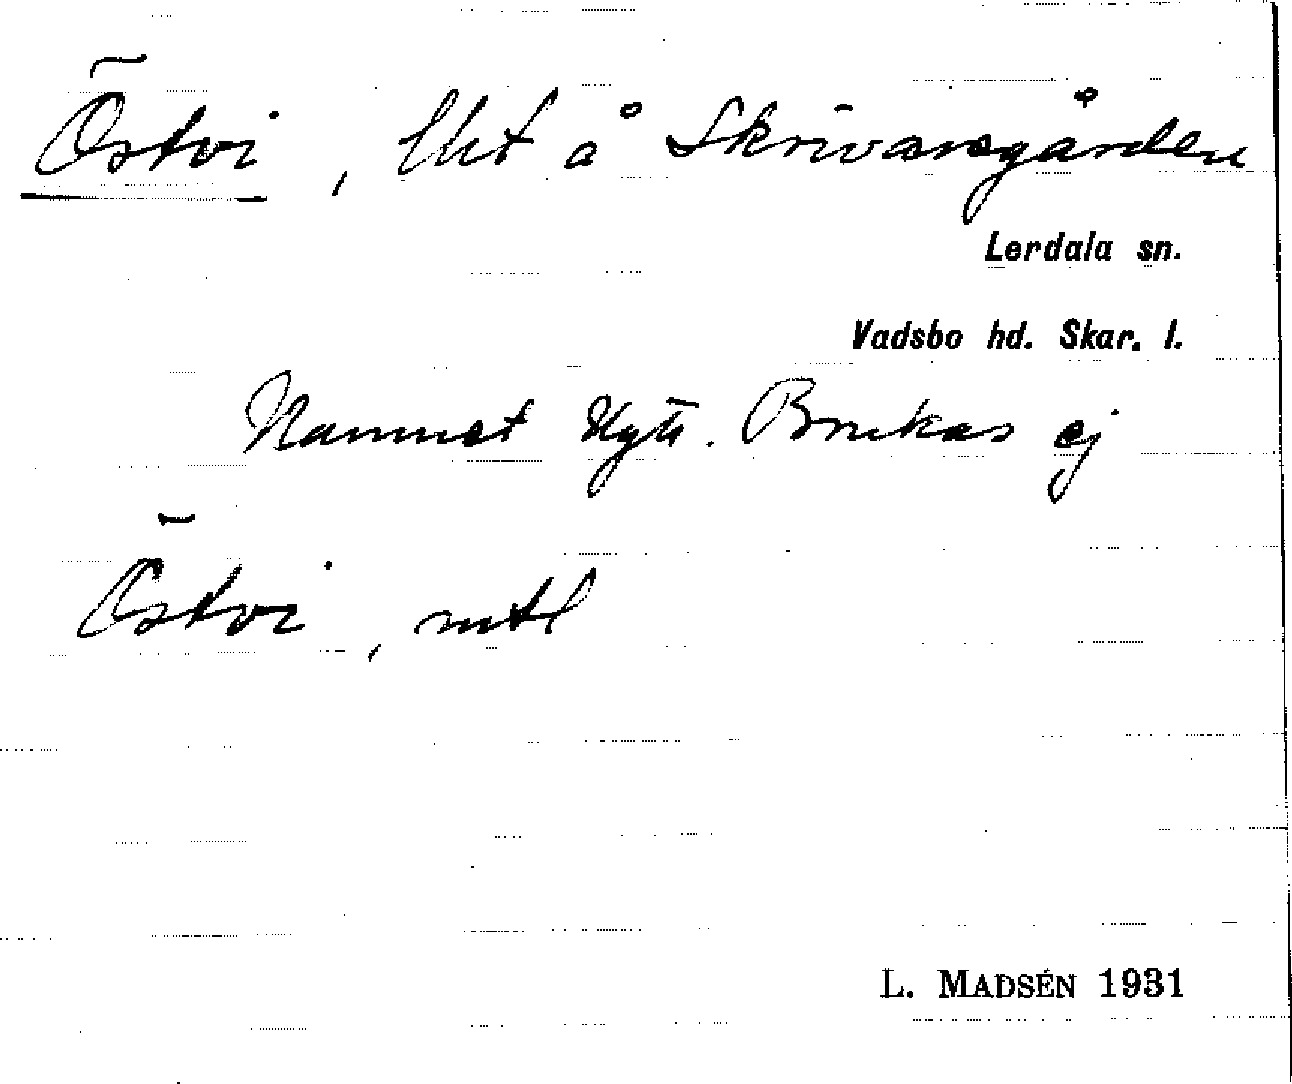 Östvi, lht å Skrivaregården
Lerdala sn.
Vadsbo hd. Skar. l.
Namnet Brukas ej
Östvi, mtl
L. MADSÉN 1931